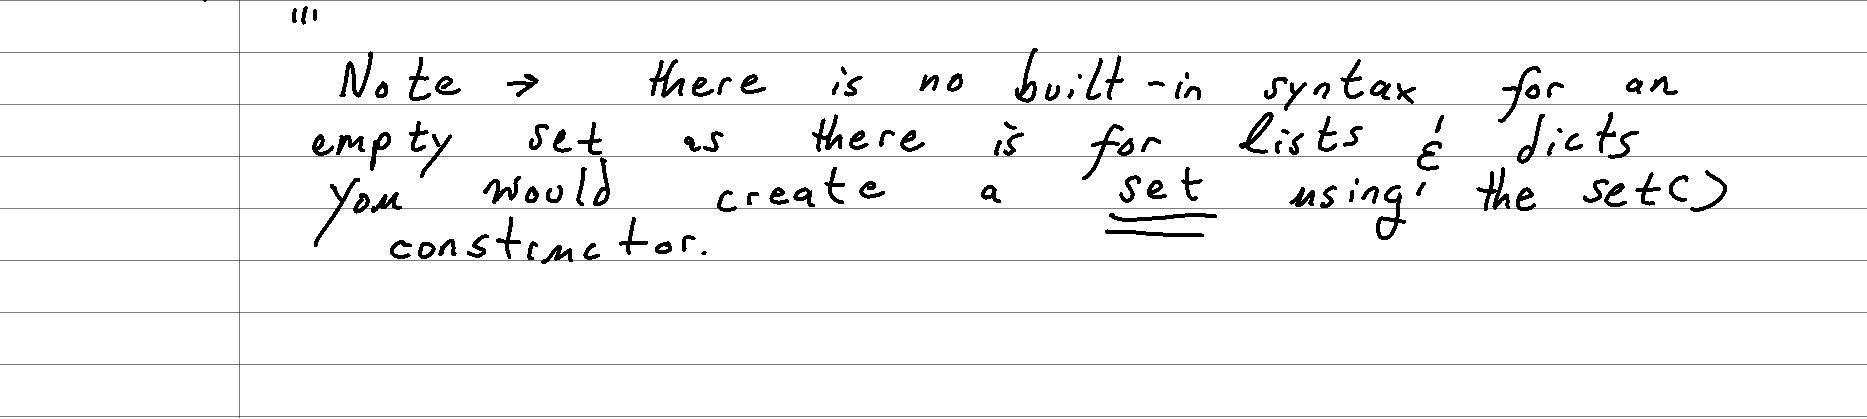 '''
Note → there is no built-in syntax for an
empty set as there is for lists & dicts
You would create a set using the set()
constructor.